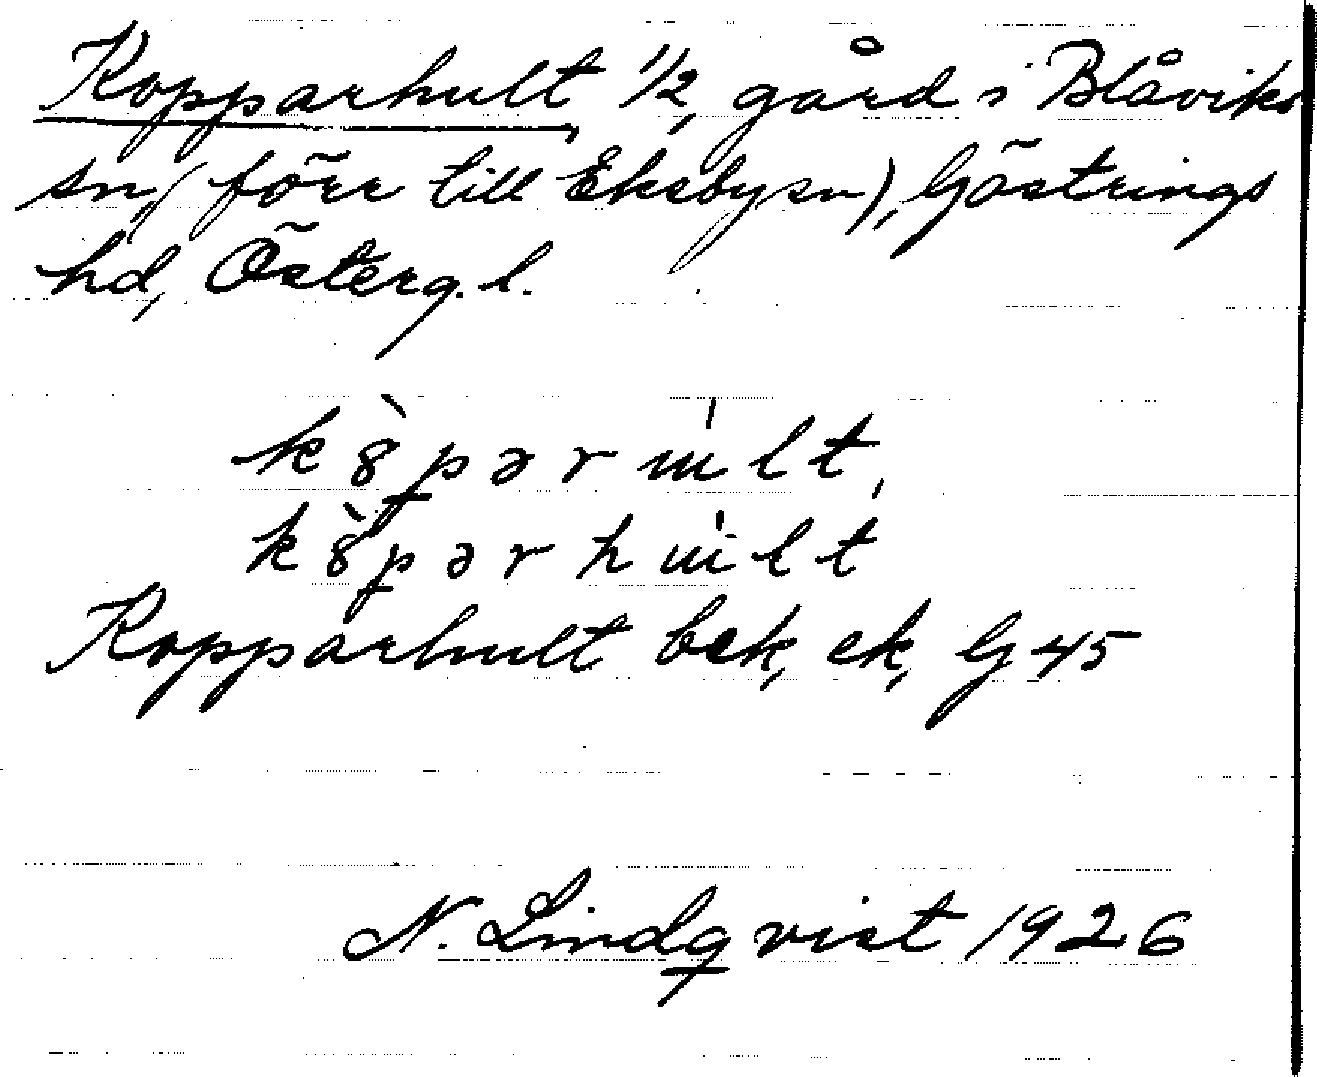 Kopparhult, 1/2, gård i Blåviks
sn, (förr till Ekeby sn), Göstrings
hd, Österg. l.
kȣ̀pərult,
kȣ̀pərhult
Kopparhult bek, ek, G 45
N. Lindqvist 1926